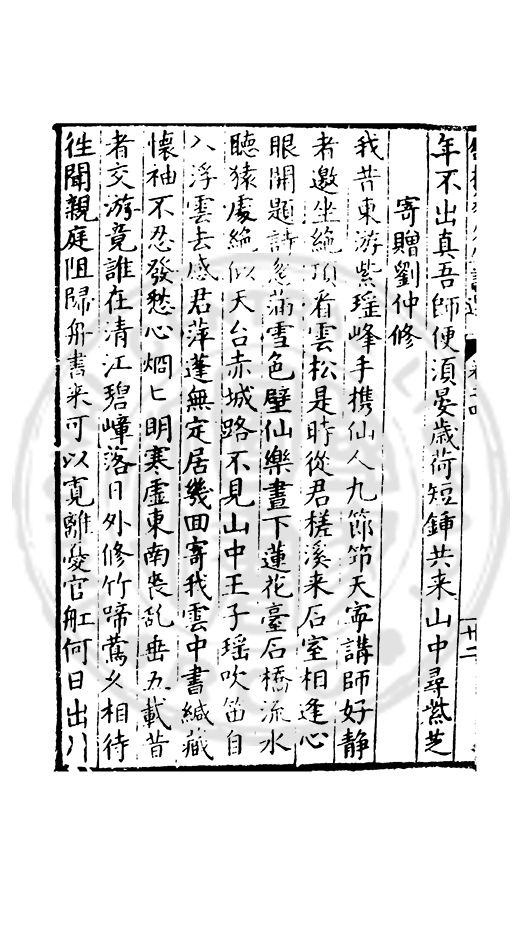 年不出真吾師便須晏歲荷短鍾共来山中尋紫芝
寄贈劉仲修
我昔東游紫瑶峰手携仙人九節筇天寧講師好静
者邀坐絶頂看雲松是時從君槎溪来石室相逢心
眼開題詩忽滿雪色壁仙樂晝下蓮花臺石橋流水
聽猿處絶似天台赤城路不見山中王子瑶吹笛自
入浮雲去感君萍蓬無定居幾回寄我雲中書緘藏
懷袖不忍發愁心烱匕明寒虚東南喪乱垂九載昔
者交游竟誰在清江碧嶂落日外修竹啼鶯久相待
徃聞親庭阻歸舟書来可以寛離憂官舡何日出
卄二